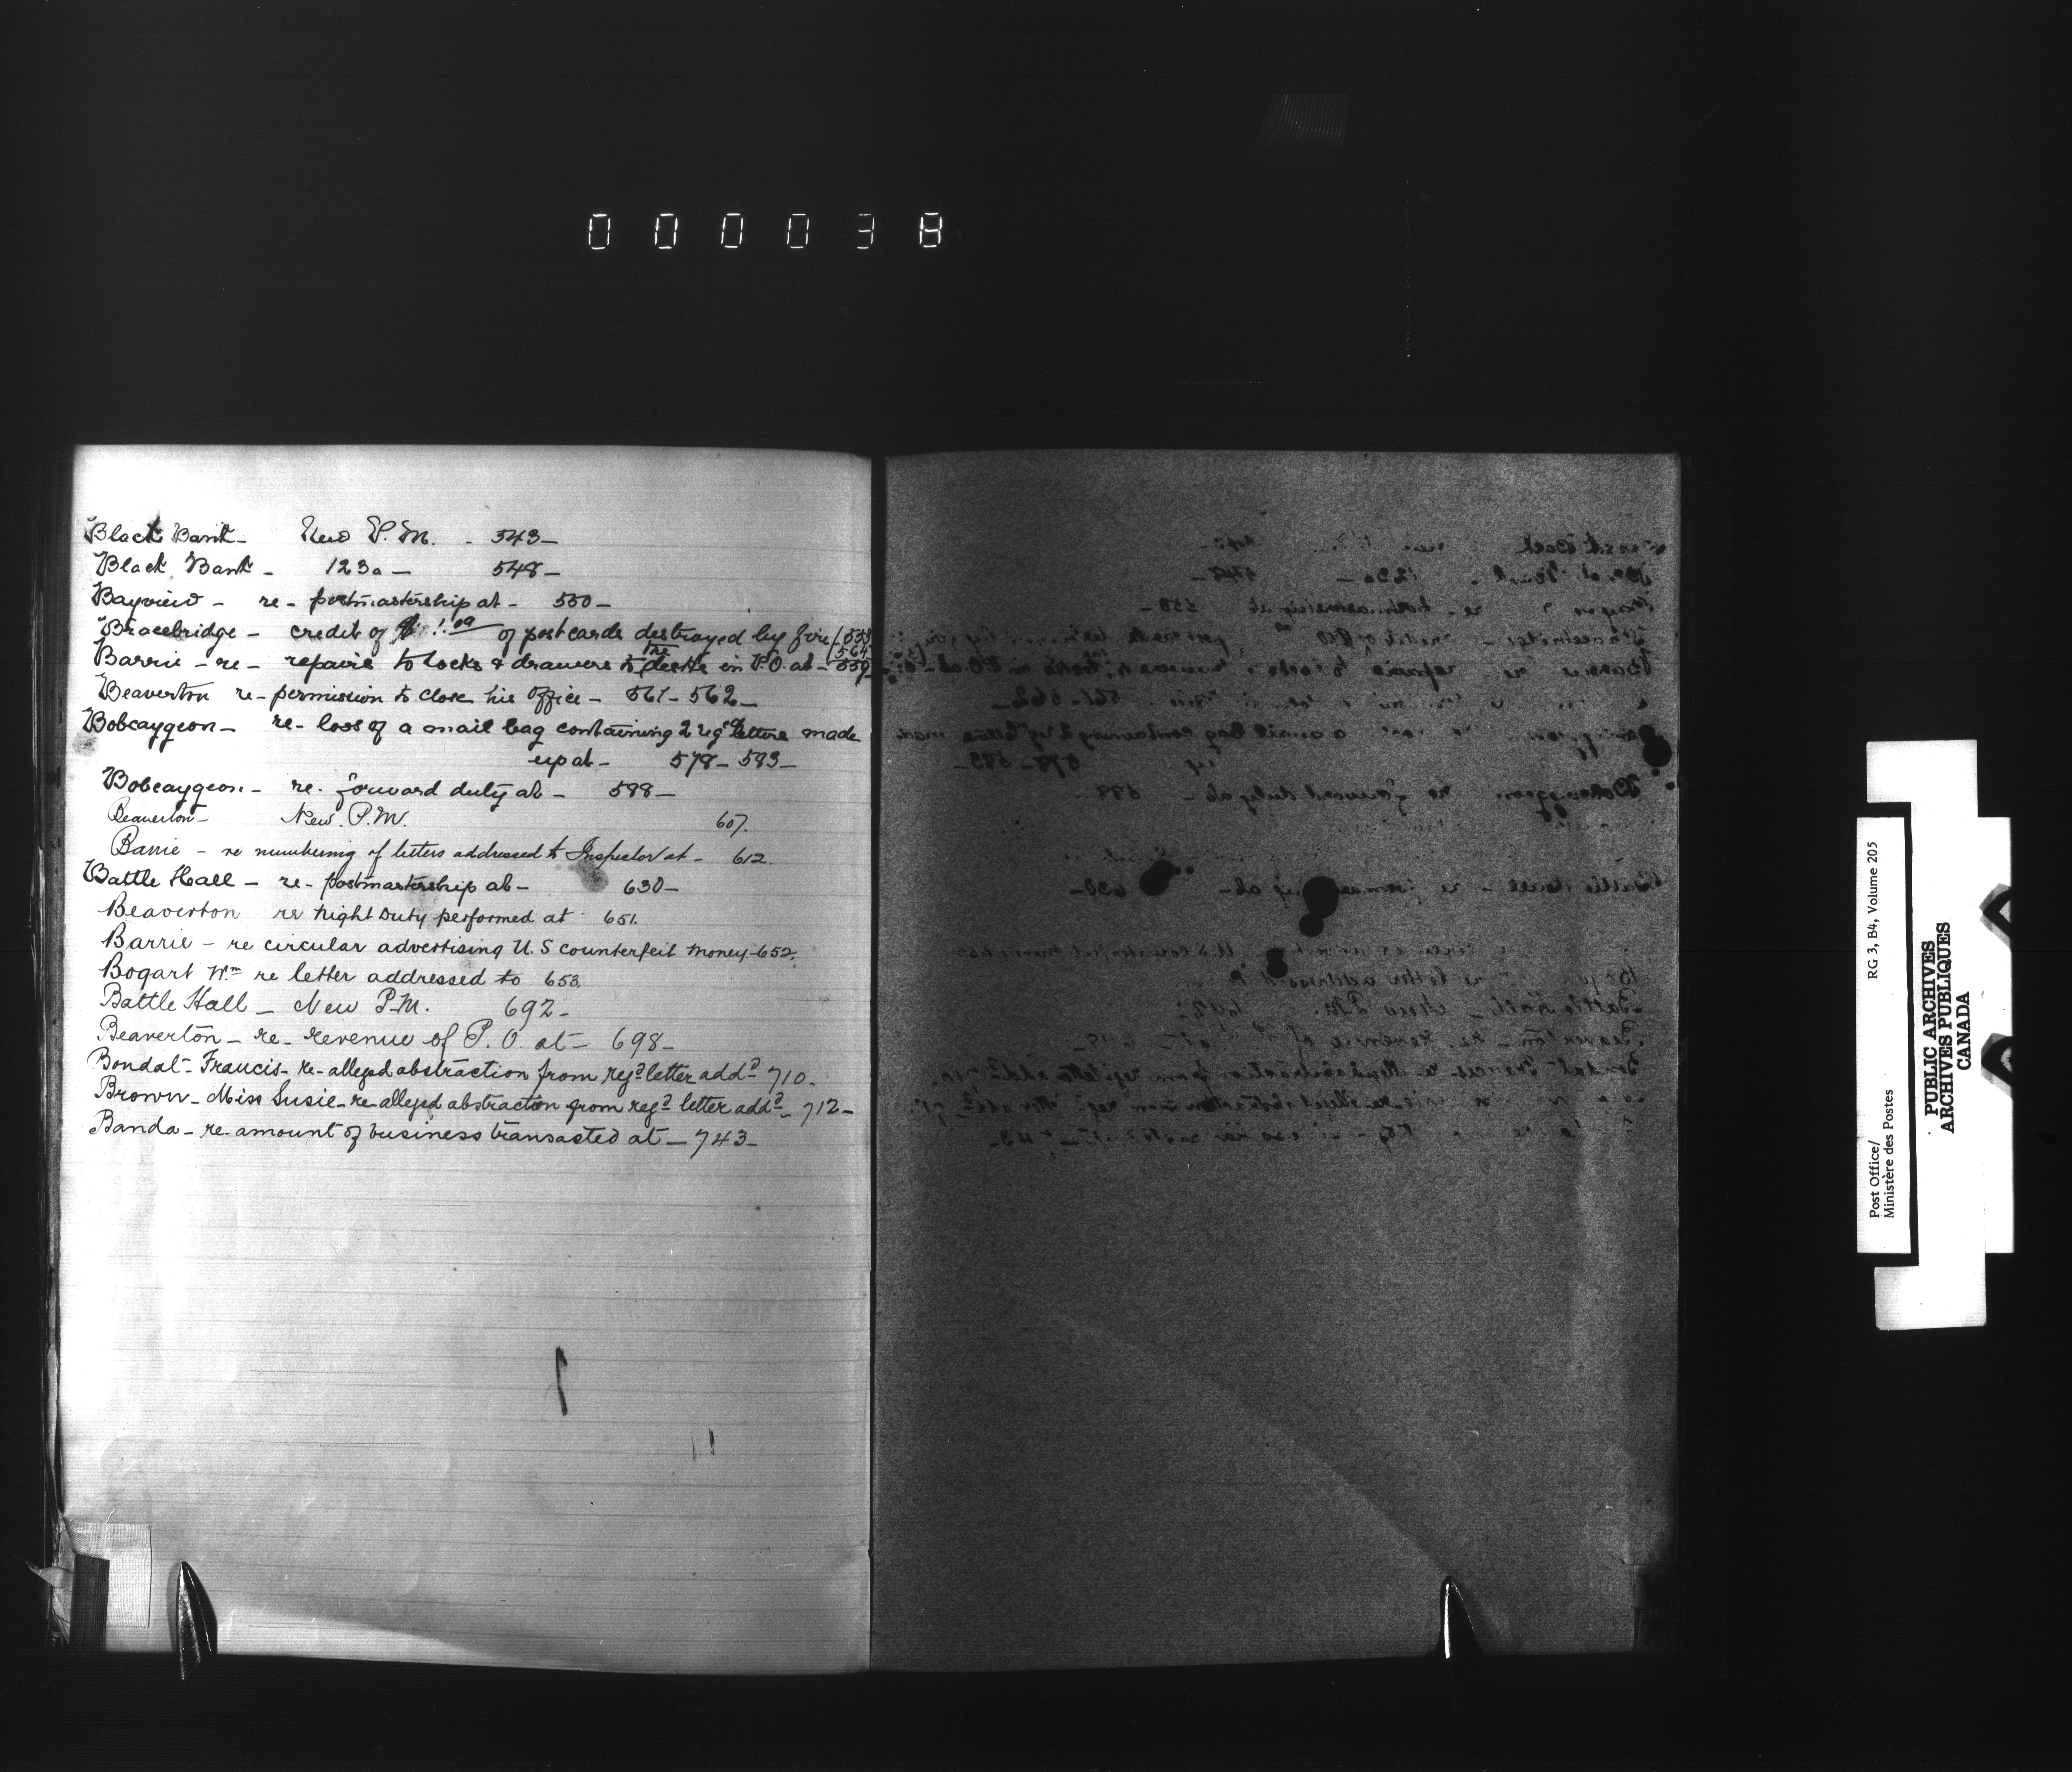 000038
Black Bank - New P.M. - 543 -
Black Bank - 123a - 548 -
Bayview - re - postmastership at - 550 -
Bracebridge - credit of of postcards destroyed by fire / 553
564
Barrie - re - repairs to locks & drawers to desks in P.O. at - 559
Beaverton re - permission to close his office - 561 - 562 -
Bobcaygeon - re - loss of a mail bag containing 2 regd letters made
up at - 578 - 583 -
Bobcaygeon - re. forward duty at - 588 -
Beaverton - New. P.M. 607.
Barrie - re numbering of letters addressed to Inspector at - 612.
Battle Hall - re - postmastership at - 630 -
Beaverton re Night Duty performed at 651.
Barrie - re circular advertising U.S counterfeit money - 652.
Bogart Wm re letter addressed to 653.
Battle Hall - New P.M. 692 -
Beaverton - re - revenue of P.O. at - 698 -
Bondal - Francis - re - alleged abstraction from regd letter addd 710 -
Brown - Miss Susie - re alleged abstraction from regd letter addd - 712 -
Banda - re amount of business transacted at - 743 -
RG 3, B4, Volume 205
Post Office/
Ministère des Postes
PUBLIC ARCHIVES
ARCHIVES PUBLIQUES
CANADA